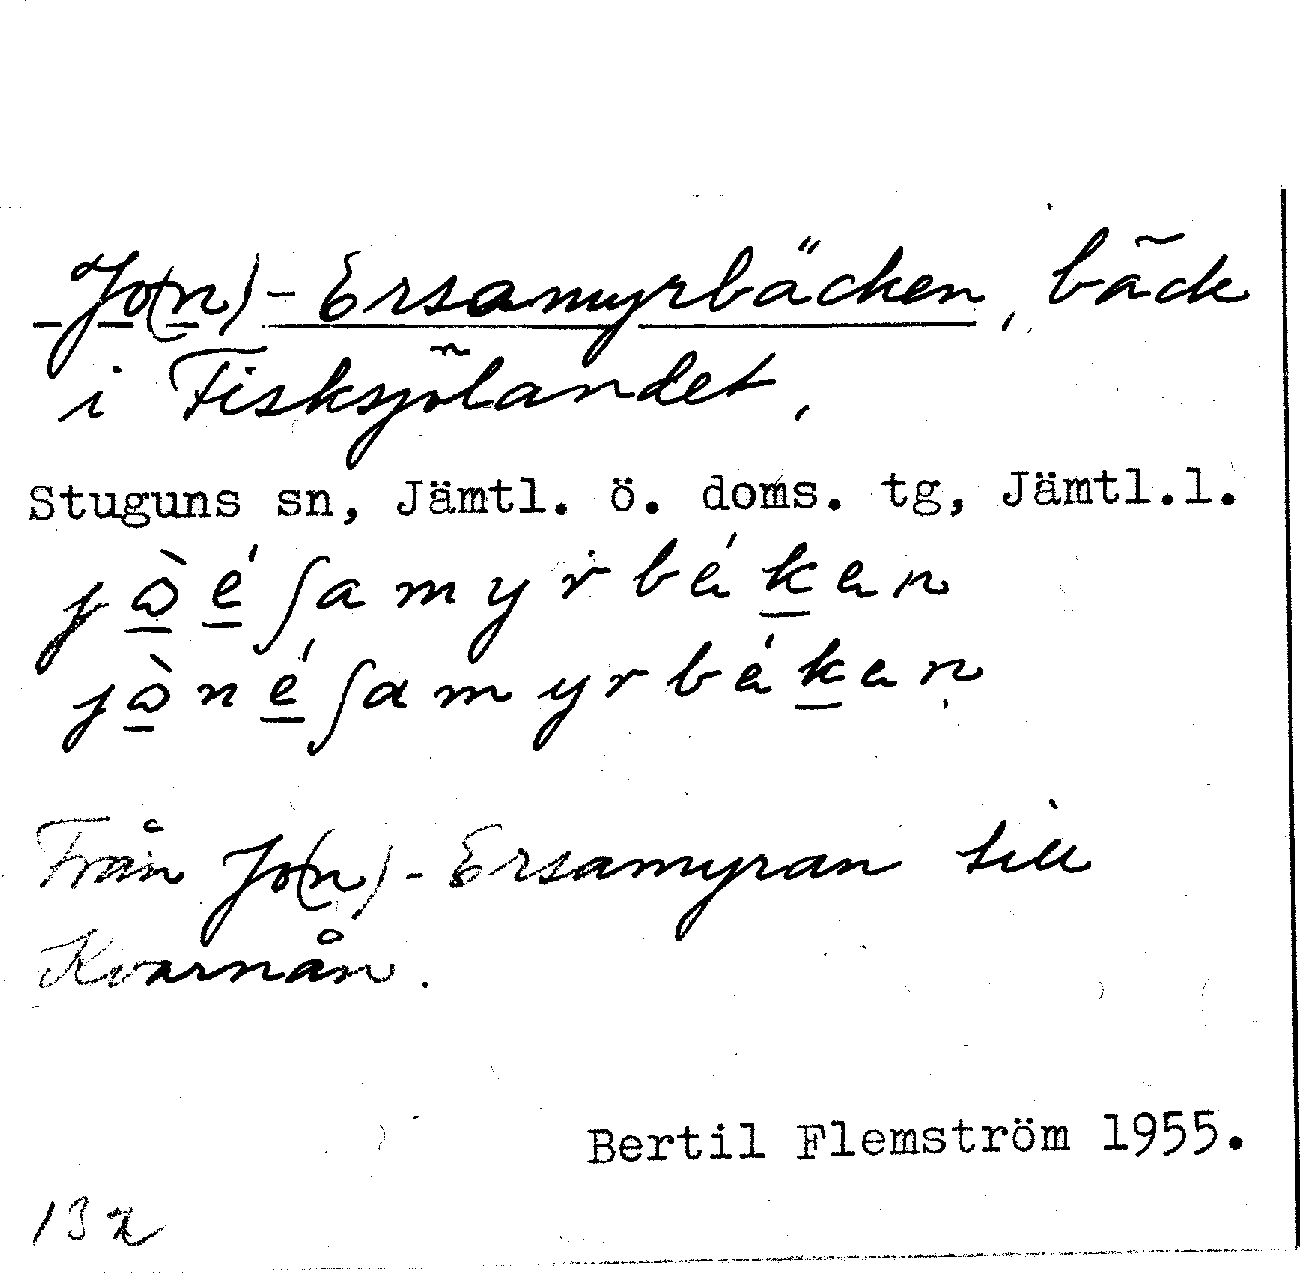 Jo(n)-Ersamyrbäcken, bäck
i Fisksjölandet,
Stuguns sn, Jämtl. ö. doms. tg, Jämtl.l.
Från Jo(n)-Ersamyran till
Kvarnån.
Bertil Flemström 1955.